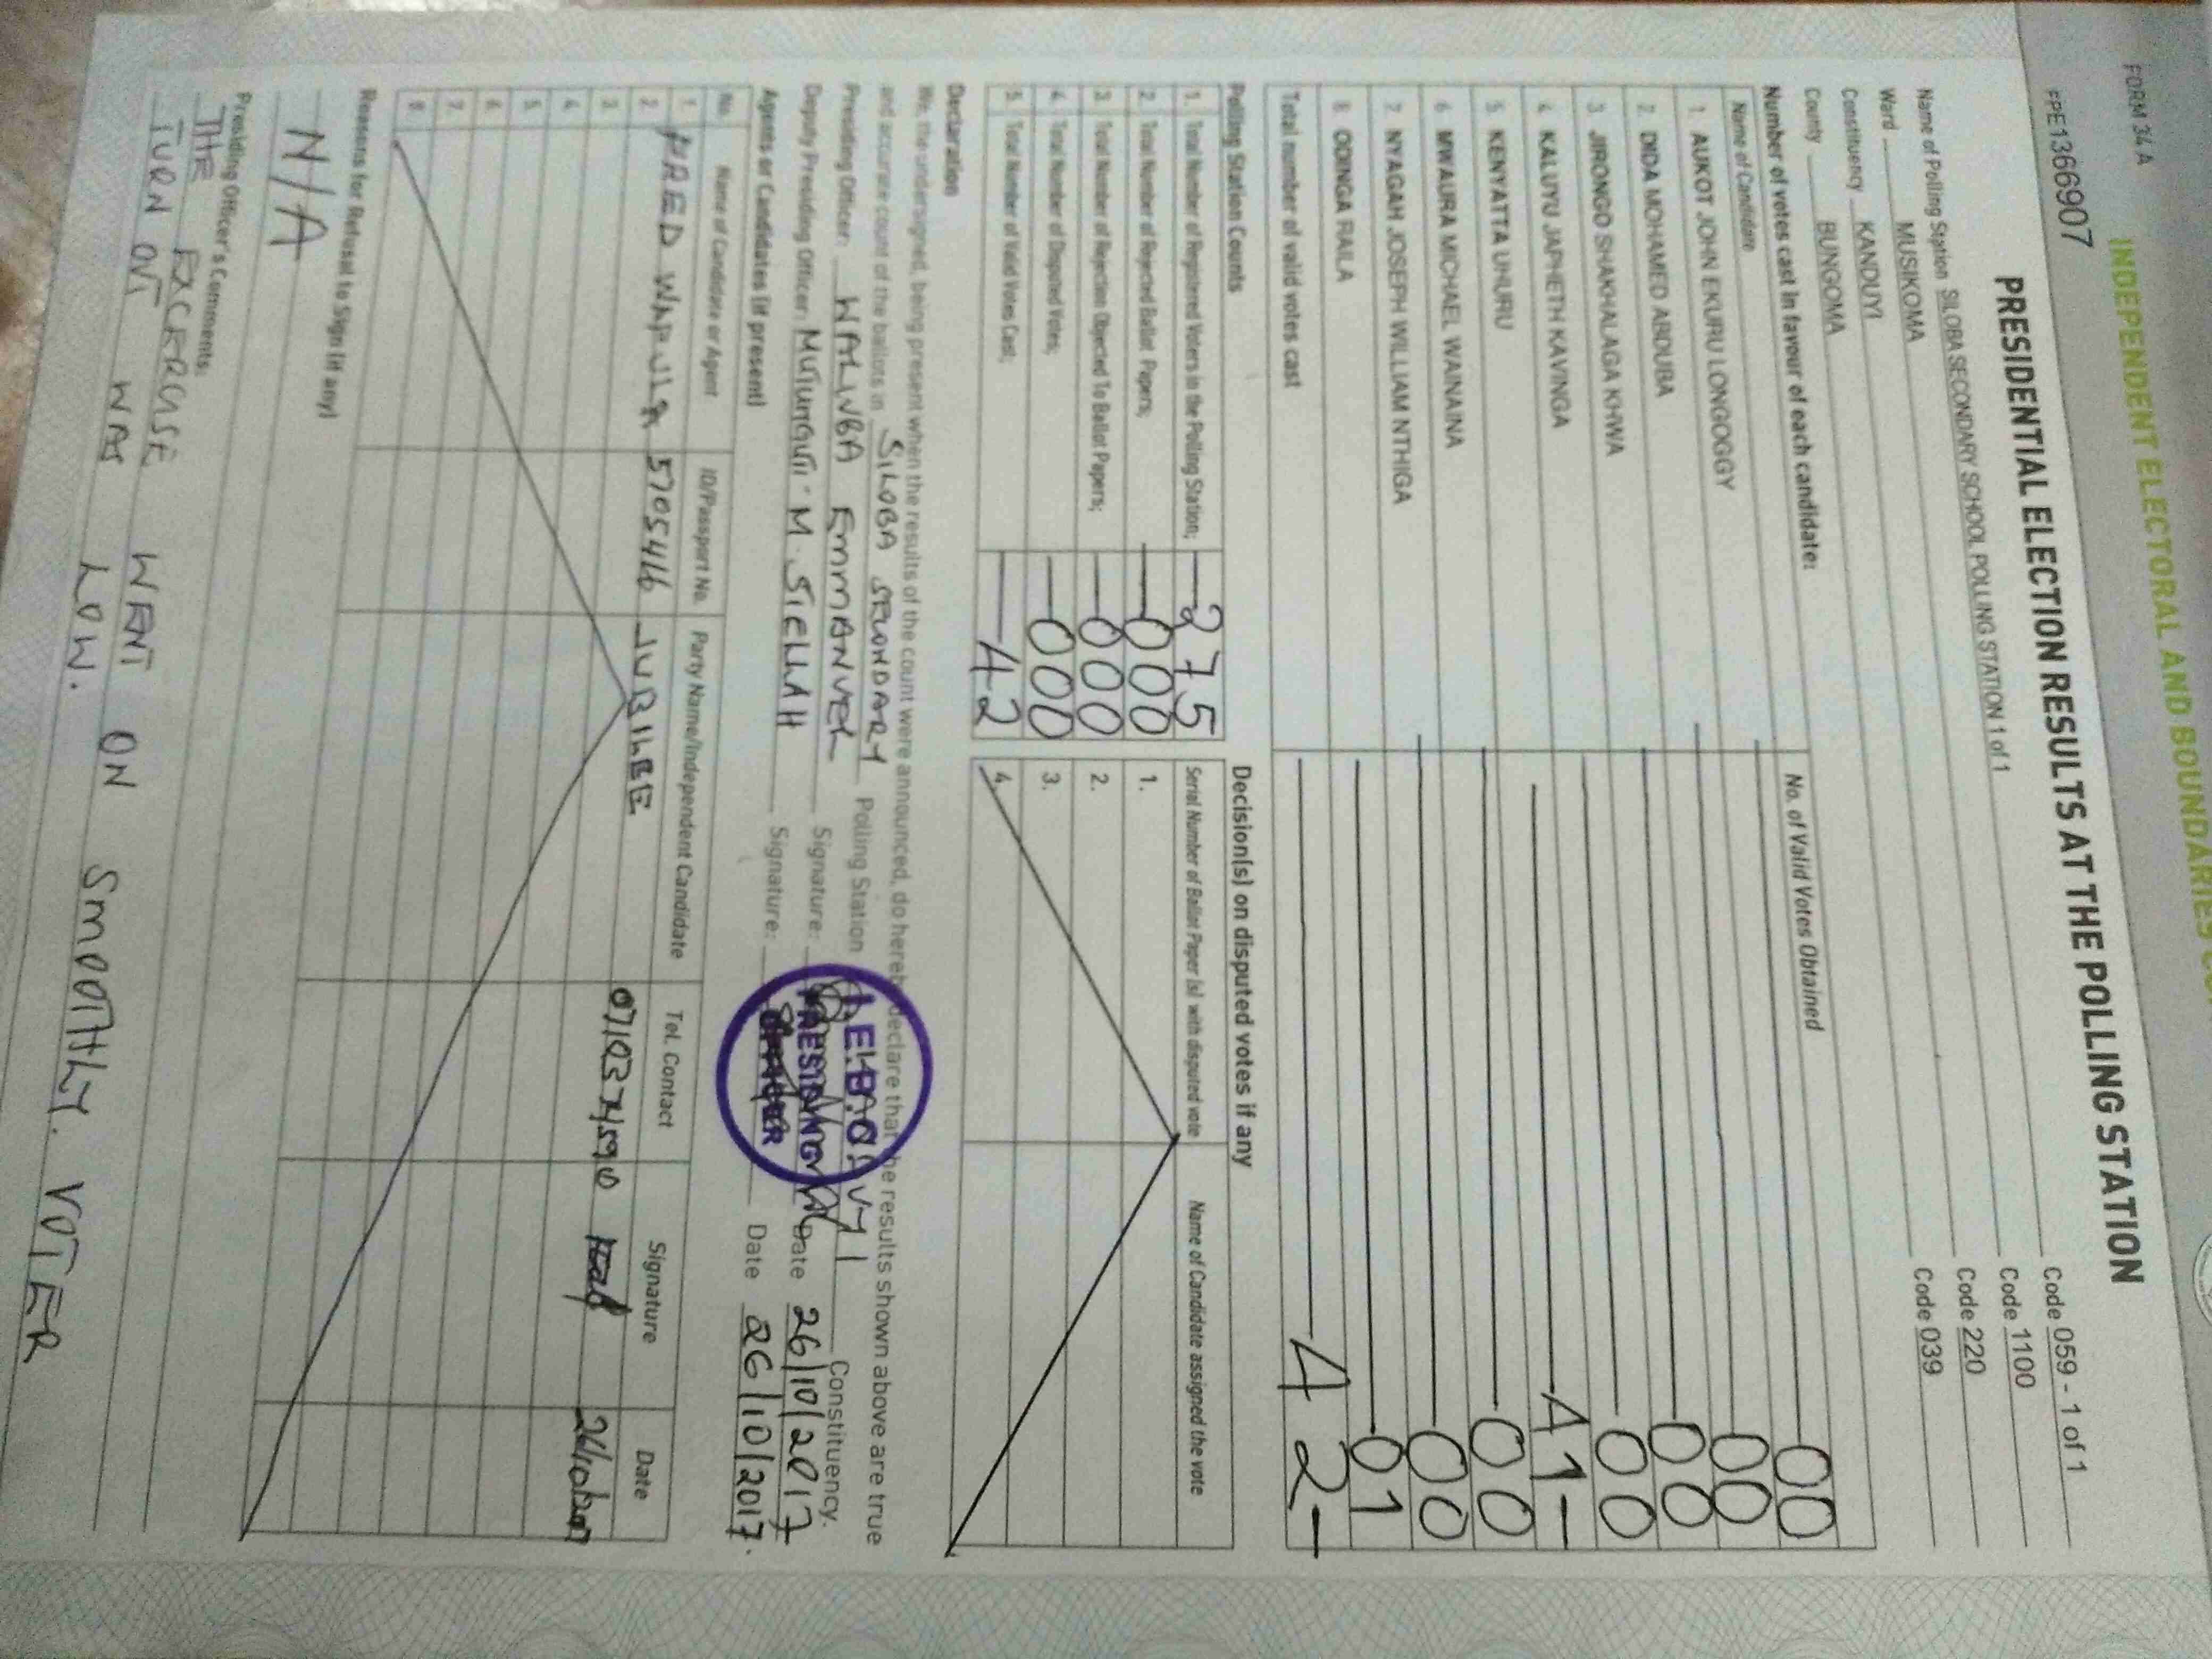 FORM 34A
INDEPENDENT ELECTORAL AND BOUNDARIES
FPE1366907
PRESIDENTIAL ELECTION RESULTS AT THE POLLING STATION
Name of Polling Station SILOBA SECONDARY SCHOOL POLLING STATION 1 of 1 Code 059 - 1 of 1
Ward MUSIKOMA Code 1100
Constituency KANDUYI Code 220
County BUNGOMA Code 039
Number of votes cast in favour of each candidate:
Name of Candidate No. of Valid Votes Obtained
1. AUKOT JOHN EKURU LONGOGGY 00
2. DIDA MOHAMED ABDUBA 00
3. JIRONGO SHAKHALAGA KHWA 00
4. KALUYU JAPHETH KAVINGA 00
5. KENYATTA UHURU 41-
6. MWAURA MICHAEL WAINAINA 00
7. NYAGAH JOSEPH WILLIAM NTHIGA 00
8. ODINGA RAILA 01
Total number of valid votes cast 42-
Polling Station Counts Decision(s) on disputed votes if any
1. Total Number of Registered Voters in the Polling Station; 275 Serial Number of Ballot Paper (s) with disputed vote Name of Candidate assigned the vote
2. Total Number of Rejected Ballot Papers; 000 1.
3. Total Number of Rejection Objected To Ballot Papers; 000 2.
4. Total Number of Disputed Votes; 000 3.
5. Total Number of Valid Votes Cast; 42 4.
Declaration
We, the undersigned, being present when the results of the count were announced, do hereby declare that the results shown above are true
and accurate count of the ballots in SILOBA SECONDARY Polling Station Constituency.
Presiding Officer: WALUBA EMMANUEL Signature: Date 26/10/2017
Deputy Presiding Officer: M. SICHAH Signature: Date 26/10/2017.
Agents or Candidates (if present)
No. Name of Candidate or Agent ID/Passport No. Party Name/Independent Candidate Tel. Contact Signature Date
1. FRED 5705416 JUBILEE
2.
3.
4.
5.
6.
7.
8.
Reasons for Refusal to Sign (if any)
N/A
Presiding Officer's Comments:
THE EXCERCISE WENT ON SMOOTHLY. VOTER
TURN OUT WAS LOW.